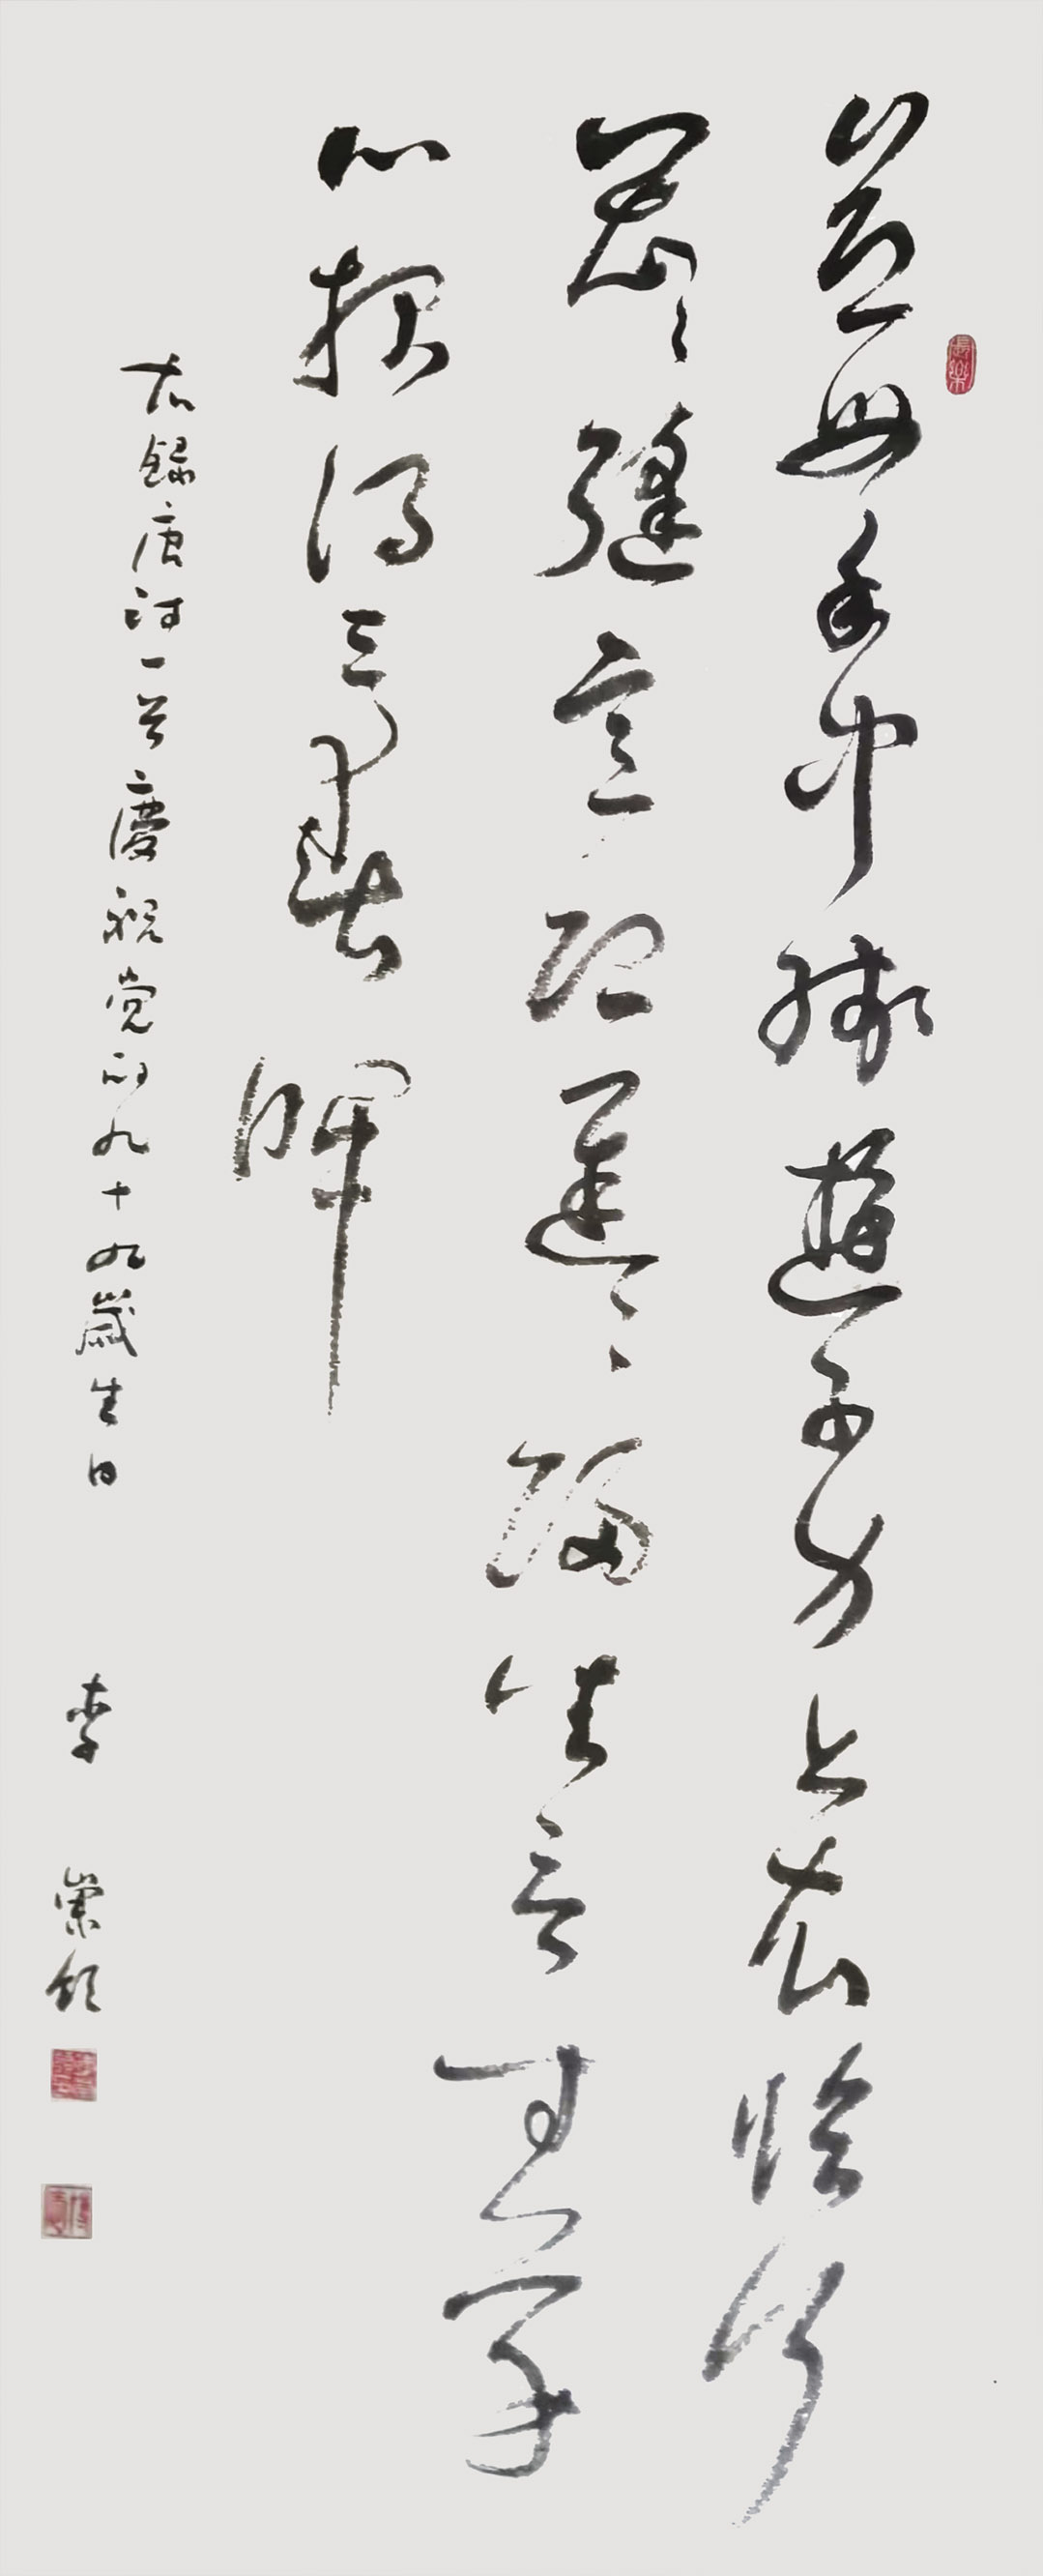 慈母手中線遊子身上衣臨行
密密縫意恐遲遲歸誰言寸草
心報得三春暉
右錄唐詩一首慶祝党的九十九歲生日
李崇
長樂